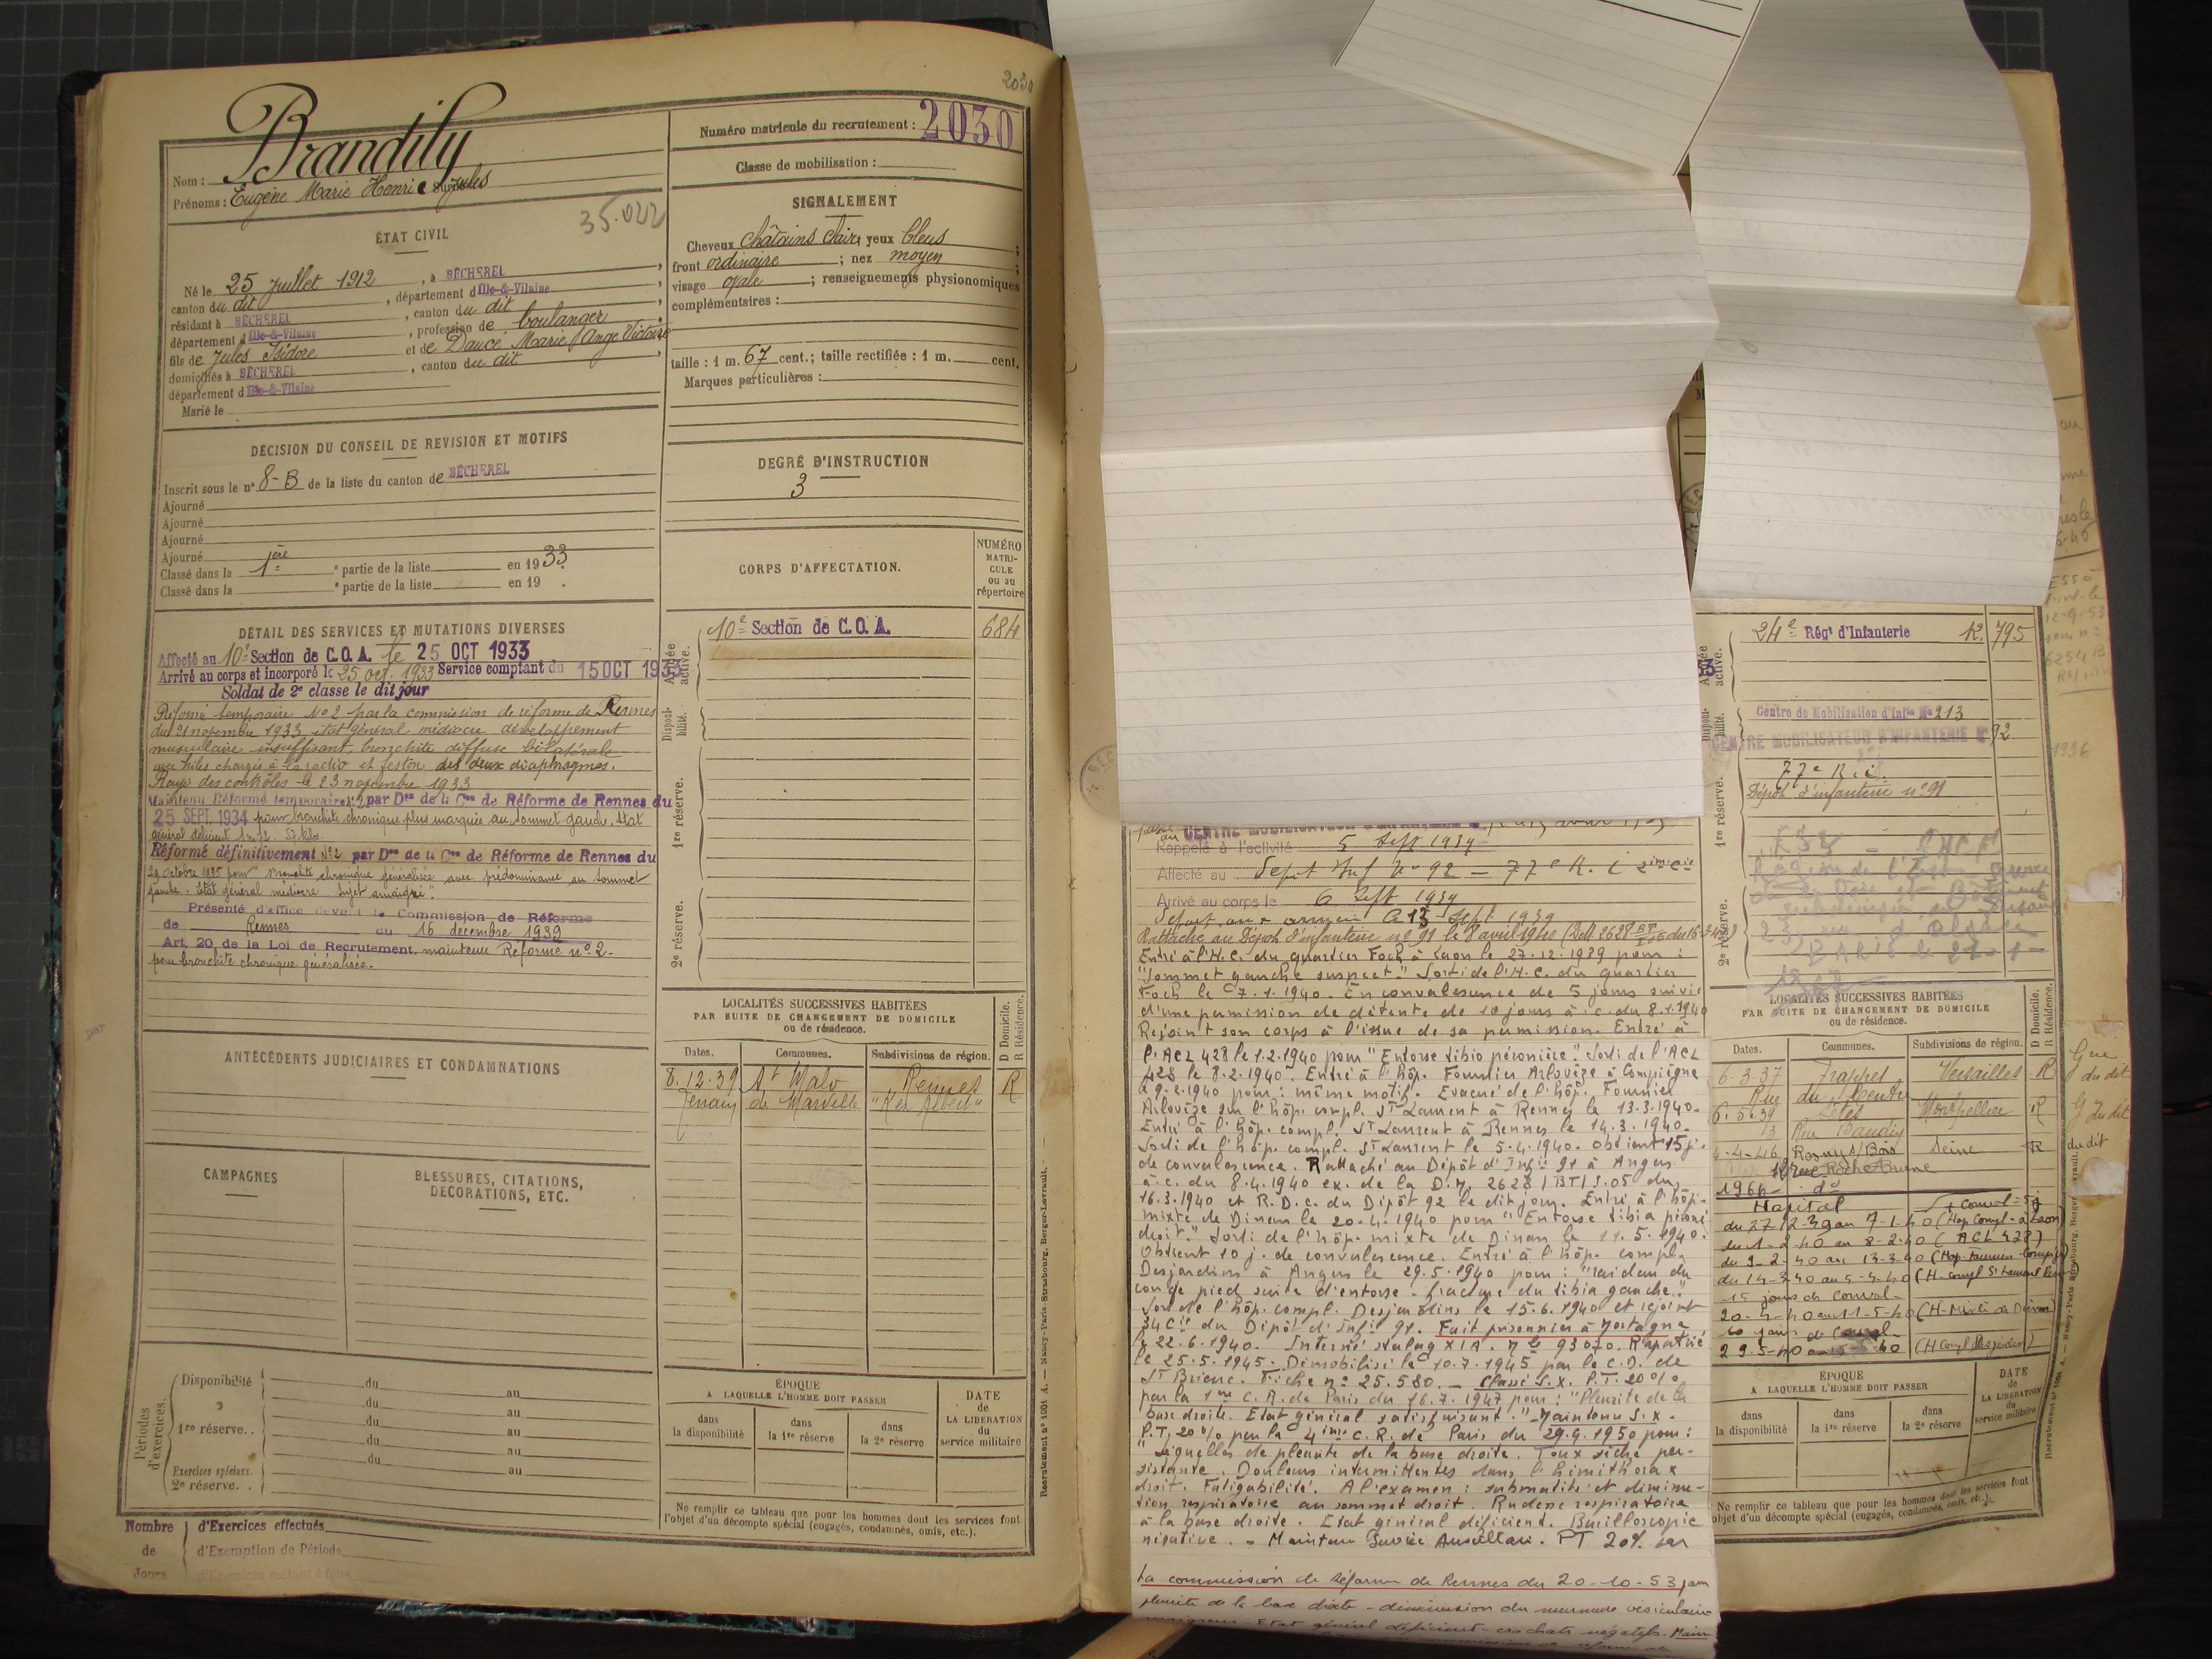 2030
Brandily
Nom :
Prénoms : Eugène Marie Henri Jules
35.022
ÉTAT CIVIL
Né le 25 Juillet 1912, à BÉCHEREL
canton du dit, département d'Ille-&-Vilaine,
résidant à BÉCHEREL, canton du dit,
département d'Ille-&-Vilaine, profession de boulanger,
fils de Jules Isidore et de Daucé Marie Ange Victoire
domiciliés à BÉCHEREL, canton du dit,
département d'Ille-&-Vilaine
Marié le
DÉCISION DU CONSEIL DE REVISION ET MOTIFS
Inscrit sous le n° 8-B de la liste du canton de BÉCHEREL
Ajourné
Ajourné
Ajourné
Ajourné
Classé dans la 1ère partie de la liste en 1933.
Classé dans la e partie de la liste en 19 .
DÉTAIL DES SERVICES ET MUTATIONS DIVERSES
Affecté au 10e Section de C.O.A. le 25 OCT 1933
Arrivé au corps et incorporé le 25 oct. 1933 Service comptant du 15 OCT 1933
Soldat de 2e classe le dit jour
Réformé temporaire N°2 par la commission de réforme de Rennes
du 21 novembre 1933 état général médiocre développement
musculaire insuffisant, bronchite diffuse bilatérale
avec hiles chargés à la radio et feston des deux diaphragmes.
Rayé des contrôles le 23 novembre 1933
Maintenu Réformé temporaire n°2 par Don de la Con de Réforme de Rennes du
25 SEPT. 1934 pour bronchite chronique plus marquée au sommet gauche, état
général déficient
Réformé définitivement N°2 par Don de la Con de Réforme de Rennes du
29 octobre 1935 pour "Bronchite chronique généralisée avec prédominance au sommet
gauche. Etat général médiocre. Sujet amaigri".
Présenté d'office devant la Commission de Réforme
de Rennes du 16 décembre 1939
Art. 20 de la Loi de Recrutement, maintenu Réformé n°2
pour bronchite chronique généralisée.
ANTÉCÉDENTS JUDICIAIRES ET CONDAMNATIONS
CAMPAGNES
BLESSURES, CITATIONS,
DÉCORATIONS, ETC.
Périodes d'exercices.
Disponibilité du au
du au
1re réserve.. du au
du au
du au
Exercices spéciaux.
2e réserve. . au
Nombre de Jours
d'Exercices effectués
d'Exemption de Période
d'Exercices restant à faire
Numéro matricule du recrutement : 2030
Classe de mobilisation :
SIGNALEMENT
Cheveux châtains clairs, yeux bleus ;
front ordinaire ; nez moyen ;
visage ovale ; renseignements physionomiques
complémentaires :
taille : 1 m. 67 cent. ; taille rectifiée : 1 m. cent.
Marques particulières :
DEGRÉ D'INSTRUCTION
3
CORPS D'AFFECTATION.
NUMÉRO
MATRI-
CULE
ou au
répertoire
Armée active.
10e Section de C.O.A. 684
Disponi-
bilité.
1re réserve.
2e réserve.
LOCALITÉS SUCCESSIVES HABITÉES
PAR SUITE DE CHANGEMENT DE DOMICILE
ou de résidence.
D Domicile.
R Résidence.
Dates. Communes. Subdivisions de région.
8.12.39 St Malo Rennes R
de Marville "Ker Albert"
ÉPOQUE
A LAQUELLE L'HOMME DOIT PASSER
DATE
de
LA LIBÉRATION
du
service militaire
dans
la disponibilité
dans
la 1re réserve
dans
la 2e réserve
Ne remplir ce tableau que pour les hommes dont les services font
l'objet d'un décompte spécial (engagés, condamnés, omis, etc.).
Recrutement n° 1001 A. — Nancy-Paris-Strasbourg, Berger-Levrault.
Rappelé à l'activité 5 Sept 1939
Affecté au Dépôt Inf n° 92 – 77e R.I 2ime Cie
Arrivé au corps le 6 Sept 1939
Départ aux armées le 13 Sept 1939
Rattaché au Dépôt d'infanterie n° 91 le 8 avril 1940
Entré à l'H.C. du quartier Foch à Laon le 27.12.1939 pour :
"Sommet gauche suspect". Sorti de l'H.C. du quartier
Foch le 7.1.1940. En convalescence de 5 jours suivie
d'une permission de détente de 10 jours à c. du 8.1.1940
Rejoint son corps à l'issue de sa permission. Entré à
l'ACL 428 le 1.2.1940 pour "Entorse tibio péronière". Sorti de l'ACL
428 le 8.2.1940. Entré à l'hôp. Fournier Arlovèze à Compiègne
le 9.2.1940 pour : même motif. Evacué de l'hôp. Fournier
Arlovèze sur l'hôp. compl. St Laurent à Rennes le 13.3.1940.
Entré à l'hôp. compl. St Laurent à Rennes le 14.3.1940.
Sorti de l'hôp. compl. St Laurent le 5.4.1940. Obtient 15 j.
de convalescence. Rattaché au Dépôt d'Inf. 91 à Angers
à c. du 8.4.1940 ex. de la D.M. 2628/BT/3.05 du
16.3.1940 et R.D.C. du Dépôt 92 le dit jour. Entré à l'hôp.
mixte de Dinan le 20.4.1940 pour "Entorse tibia péroné
droit". Sorti de l'hôp. mixte de Dinan le 11.5.1940.
Obtient 10 j. de convalescence. Entré à l'hôp. compl.
Desjardins à Angers le 29.5.1940 pour : "raideur du
cou de pied suite d'entorse. fracture du tibia gauche."
Sort de l'hôp. compl. Desjardins le 15.6.1940 et rejoint
34 Cie du Dépôt d'Inf. 91. Fait prisonnier à Mortagne
le 22.6.1940. Interné stalag XI A. Mle 93070. Rapatrié
le 25.5.1945. Démobilisé le 10.7.1945 par le C.D. de
St Brieuc. Fiche n° 25.580. – Classé S.X. P.T. 20%
par la 1re C.R. de Paris du 16.7.1947 pour : "Pleurite de la
base droite. Etat général satisfaisant." – Maintenu S.X.
P.T. 20% par la 4ime C.R. de Paris du 29.9.1950 pour :
"Séquelles de pleurite de la base droite. Toux sèche per-
sistante. Douleurs intermittentes dans l'hémithorax
droit. Fatigabilité. A l'examen : submatité et diminu-
tion respiratoire au sommet droit. Rudesse respiratoire
à la base droite. Etat général déficient. Bacilloscopie
négative. – Maintenu Service Auxiliaire. PT 20% par
La commission de réforme de Rennes du 20-10-53 pour
pleurite de la base droite – diminution du murmure vésiculaire
maigreur – Etat général déficient – crachats négatifs. Main
24e Régt d'Infanterie R. 795
Armée active.
Centre de Mobilisation d'Infie N° 213
CENTRE MOBILISATEUR D'INFANTERIE N° 92.
77e R.I.
Dépôt d'infanterie n° 91
1936
Disponi-
bilité.
1re réserve.
2e réserve.
LOCALITÉS SUCCESSIVES HABITÉES
PAR SUITE DE CHANGEMENT DE DOMICILE
ou de résidence.
D Domicile.
R Résidence.
Dates. Communes. Subdivisions de région.
6.3.37 Trappes Versailles R
Rue du
6.5.39 Sète Montpellier R
13 Rue Baudin
4-4-46 Rosny s/Bois Seine R
rue Roche Brune
1964 do
du dit
Hôpital
+ Conval = 5 j
du 27-12-39 au 7-1-40 (Hop Compl – à Laon)
du 1-2-40 au 8-2-40 (ACL 428)
du 9-2-40 au 13-3-40 (Hop-Fournier-Compiègne)
du 14-3-40 au 5-4-40 (H-compl St Laurent Rennes)
15 jours de conval-
20-4-40 au 11-5-40 (H-Mixte de Dinan)
10 jours de Conval-
29-5-40 au 15-6-40 (H Compl Desjardins)
ÉPOQUE
A LAQUELLE L'HOMME DOIT PASSER
DATE
de
LA LIBÉRATION
du
service militaire
dans
la disponibilité
dans
la 1re réserve
dans
la 2e réserve
Ne remplir ce tableau que pour les hommes dont les services font
l'objet d'un décompte spécial (engagés, condamnés, omis, etc.).